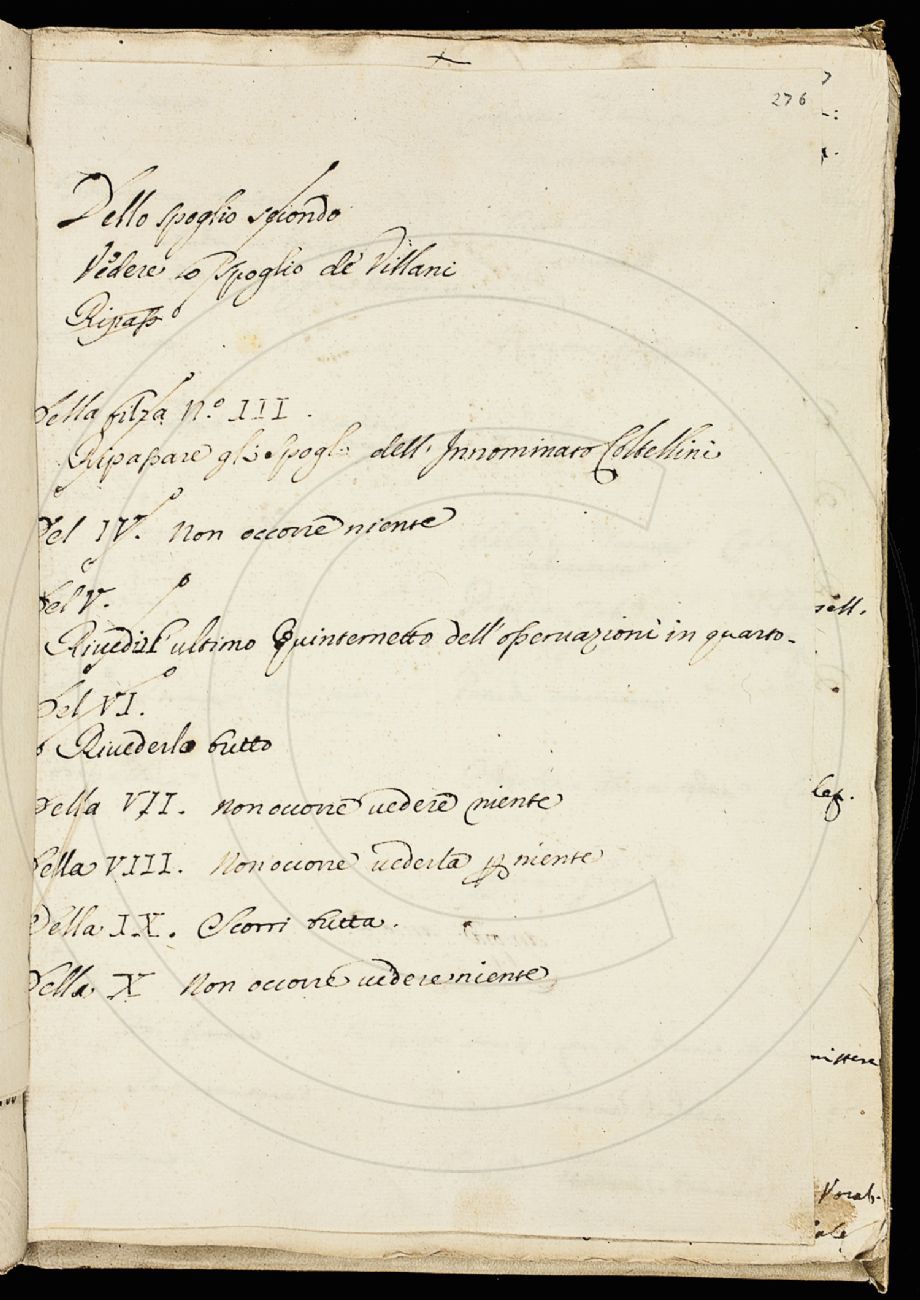 276
Dello spoglio secondo
Vedere lo spoglio de' Villani
Ripass
Della filza N.o III.
Ripassare gli spogli dell' Innominato Coltellini
Del IV. Non occorre niente
Del V.
Rivedi l'ultimo Quinternetto dell'osservazioni in quarto.
Del VI.
Rivederlo tutto
Della VII. Non occorre vedere niente
Della VIII. Non occorre vederla per niente
Della IX. Scorri tutta.
Della X Non occorre vedere niente
sell.
leg.
mettere
Vocab.